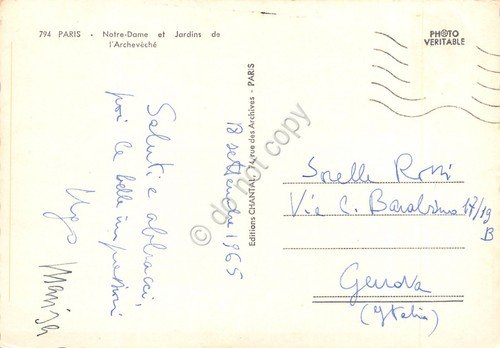 794 PARIS - Notre-Dame et Jardins de
l'Archevêché
PHOTO
VERITABLE
Editions CHANTAL, 74, rue des Archives - PARIS
18 settembre 1965
Saluti e abbracci,
poi le belle impressioni
Ugo
Marisa
Sorelle Rossi
Via C. Barabino 17/19
B
Genova
(Italia)
do not copy